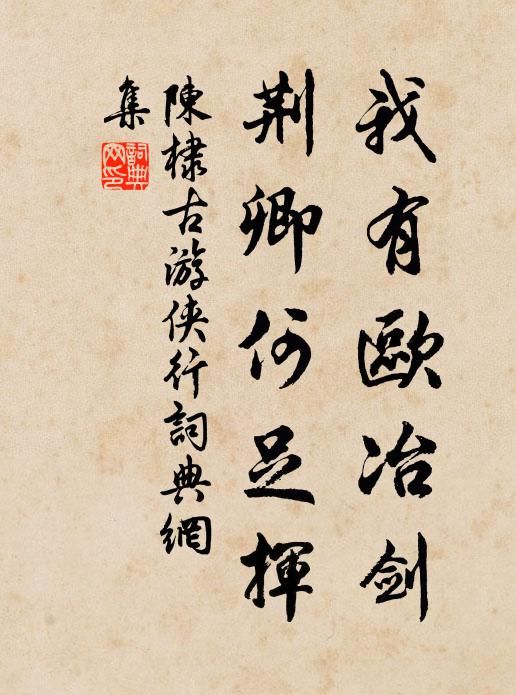 我有歐冶劍
荆卿何足揮
陳棣古游俠行詞典網
集
詞典
网印